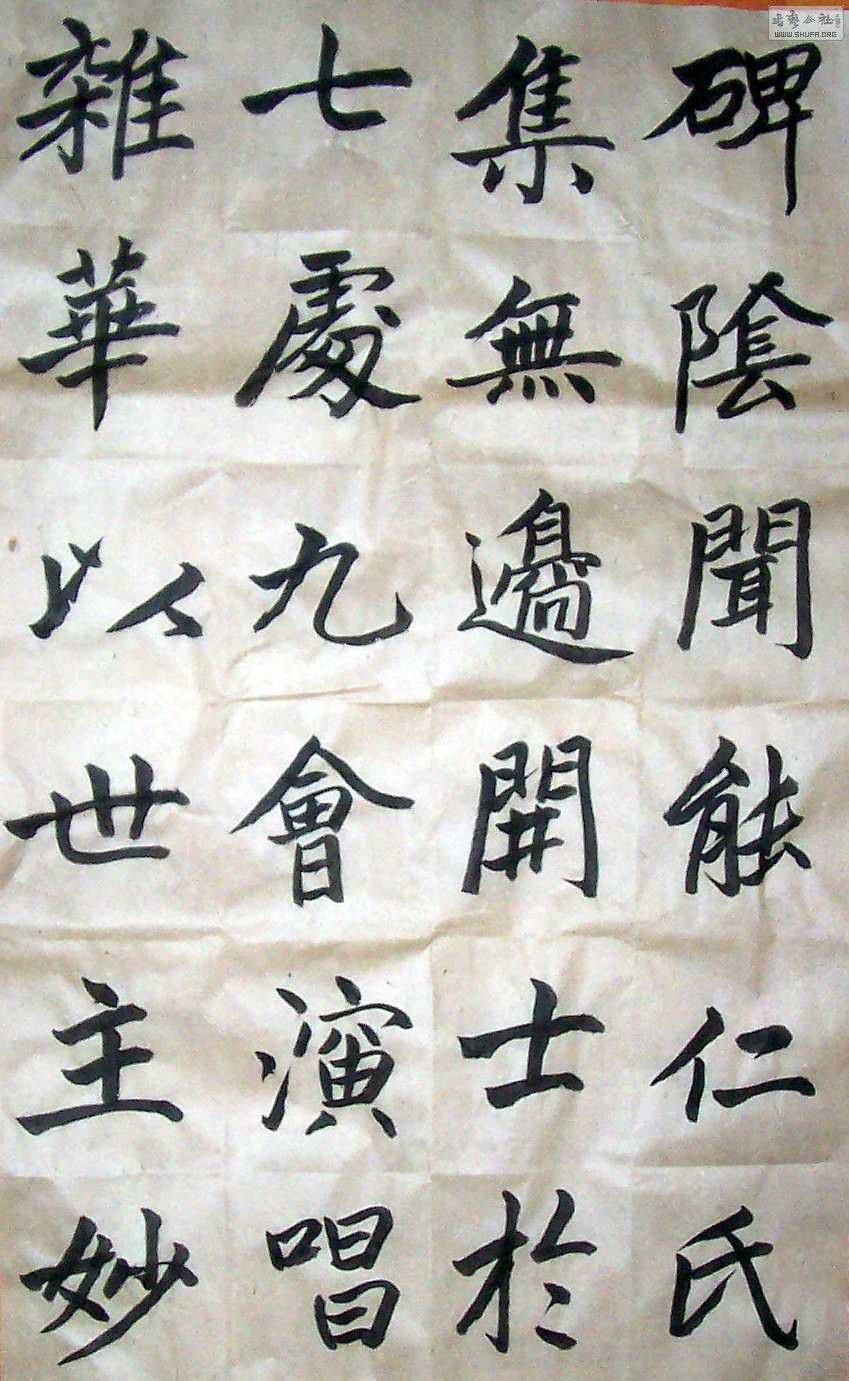 碑陰聞能仁氏
集無邊開士於
七處九會演唱
雜華以世主妙
WWW.SHUFA.ORG